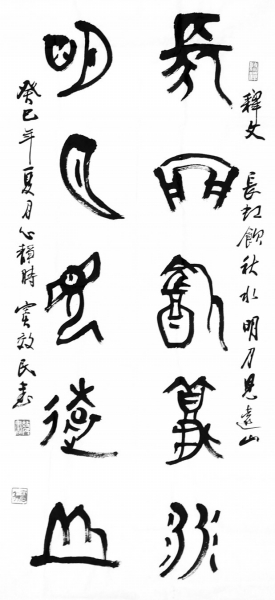 長虹飲秋水
明月見遠山
釋文 長虹飲秋水 明月見遠山
癸巳年夏月心靜時 寞效民書